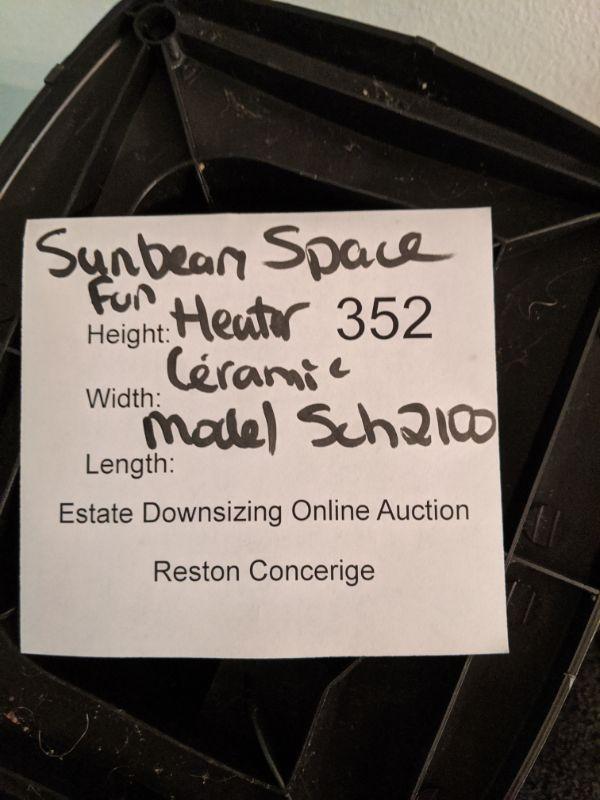 Sunbeam Space
Fan
Height: Heater 352
Ceramic
Width:
Model Sch2100
Length:
Estate Downsizing Online Auction
Reston Concerige